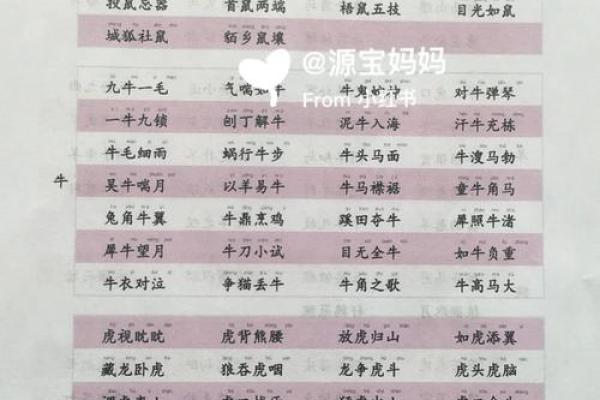 投鼠忌器 首鼠两端 梧鼠五技 目光如鼠
城狐社鼠 貊乡鼠壤
@源宝妈妈
From 小红书
九牛一毛 气喘如牛 牛鬼蛇神 对牛弹琴
一牛九锁 刨丁解牛 泥牛入海 汗牛充栋
牛毛细雨 蜗行牛步 牛头马面 牛溲马勃
牛
吴牛喘月 以羊易牛 牛马襟裾 童牛角马
兔角牛翼 牛鼎烹鸡 蹊田夺牛 犀照牛渚
犀牛望月 牛刀小试 目无全牛 如牛负重
牛衣对泣 争猫丢牛 牛角之歌 牛高马大
虎视眈眈 虎背熊腰 放虎归山 如虎添翼
藏龙卧虎 狼吞虎咽 龙争虎斗 虎头虎脑